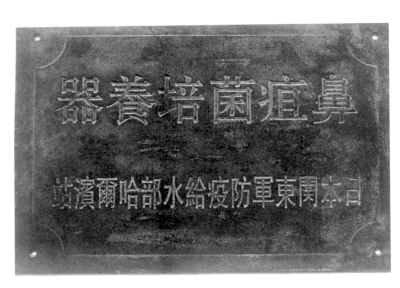 鼻疽菌培養器
日本関東軍防疫給水部哈爾濱站